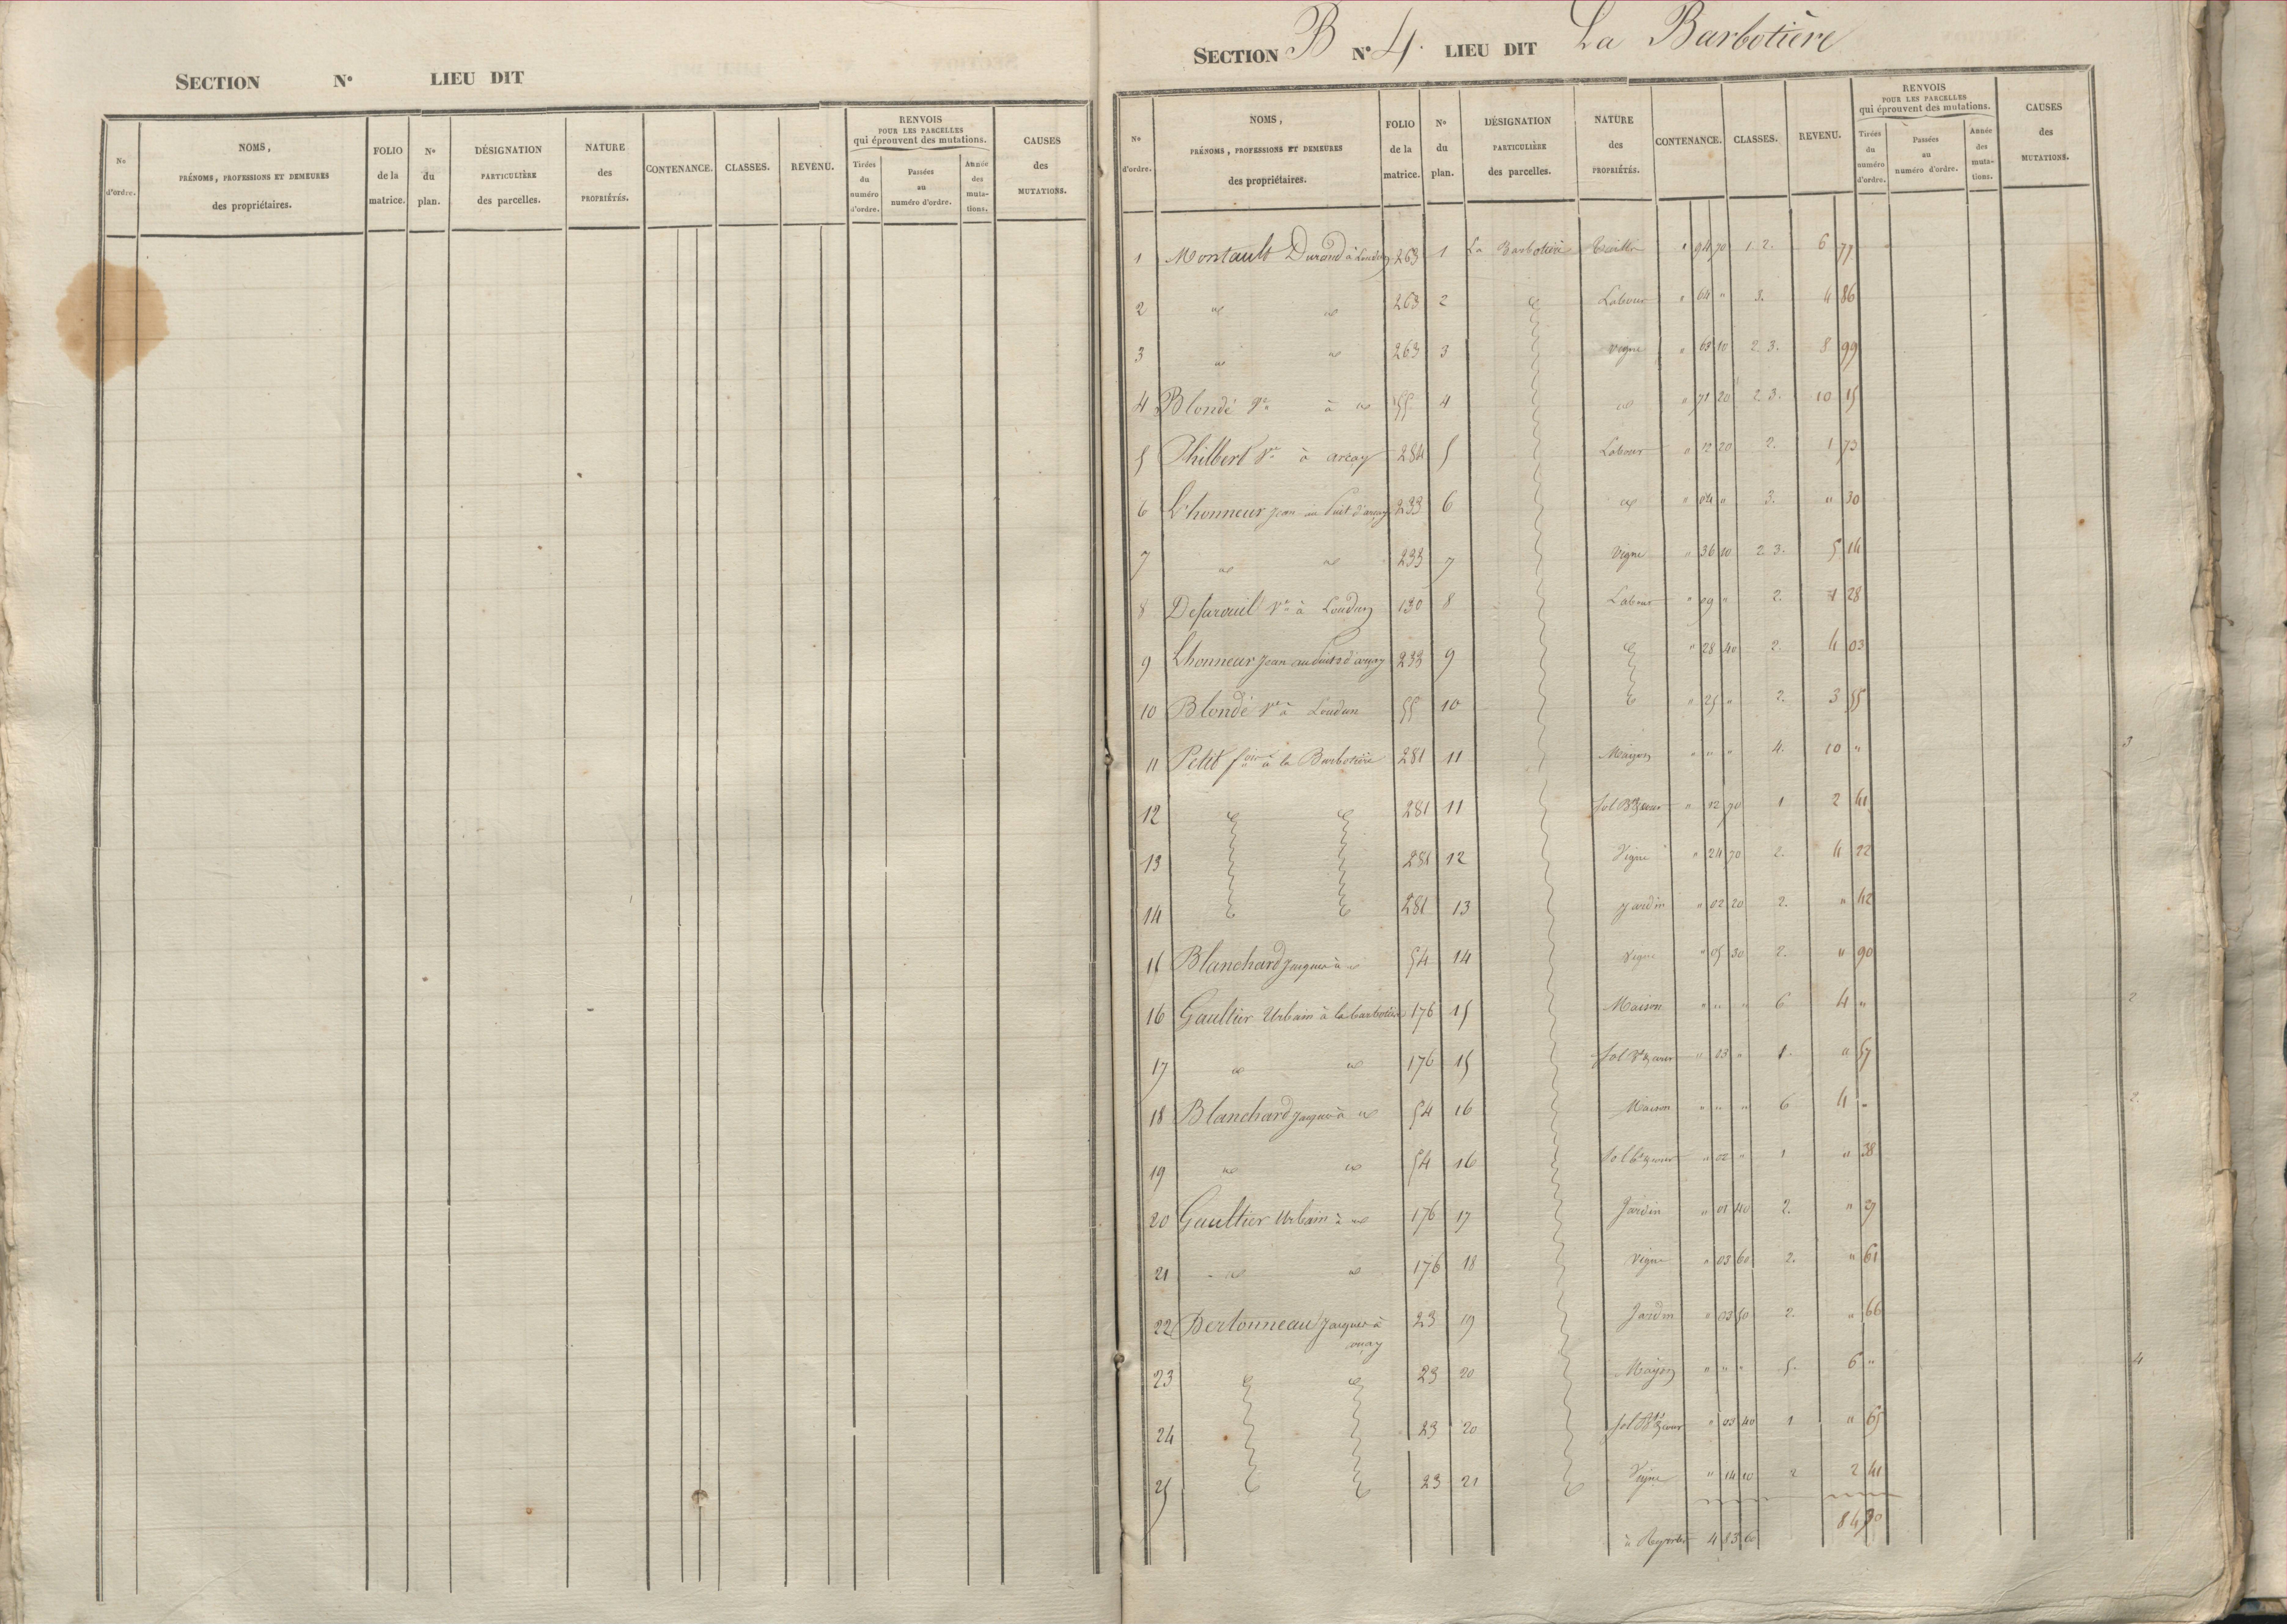 SECTION N° LIEU DIT
N° d'ordre. NOMS, PRÉNOMS, PROFESSIONS ET DEMEURES des propriétaires. FOLIO de la matrice. N° du plan. DÉSIGNATION PARTICULIÈRE des parcelles. NATURE des PROPRIÉTÉS. CONTENANCE. CLASSES. REVENU. RENVOIS POUR LES PARCELLES qui éprouvent des mutations. Tirées du numéro d'ordre. Passées au numéro d'ordre. Année des mutations. CAUSES des MUTATIONS.
SECTION B N° 4. LIEU DIT La Barbotière
N° d'ordre. NOMS, PRÉNOMS, PROFESSIONS ET DEMEURES des propriétaires. FOLIO de la matrice. N° du plan. DÉSIGNATION PARTICULIÈRE des parcelles. NATURE des PROPRIÉTÉS. CONTENANCE. CLASSES. REVENU. RENVOIS POUR LES PARCELLES qui éprouvent des mutations. Tirées du numéro d'ordre. Passées au numéro d'ordre. Année des mutations. CAUSES des MUTATIONS.
1 Montault Durand à Loudun 263 1 La Barbotière " 94 70 1. 2. 6 77
2 " " 263 2 " Labour " 64 " 3. 4 86
3 " " 263 3 Vigne " 63 10 2. 3. 8 99
4 Blondé Ve à " 55 4 " " 71 20 2. 3. 10 15
5 Philbert Ve à arcay 284 5 Labour " 12 20 2. 1 73
6 L'honneur Jean au Puit d'arcay 233 6 " " 04 " 3. " 30
7 " " 233 7 Vigne " 36 10 2. 3. 5 14
8 Ve à Loudun 130 8 Labour " 09 " 2. 1 28
9 Lhonneur Jean au Puits d'arçay 233 9 " " 28 40 2. 4 03
10 Blondé Ve à Loudun 55 10 " " 25 " 2. 3 55
11 Petit à la Barbotière 281 11 Maison " " " 4. 10 "
12 " " 281 11 Sol Bt & cour " 12 70 1 2 41
13 281 12 Vigne " 24 70 2. 4 22
14 " " 281 13 Jardin " 02 20 2. " 42
15 Blanchard Jacques à " 54 14 Vigne " 05 30 2. " 90
16 Gaultier Urbain à la barbotière 176 15 Maison " " " 6 4 "
17 " " 176 15 Sol Bt & cour " 03 " 1. " 57
18 Blanchard Jacques à " 54 16 Maison " " " 6 4 "
19 " " 54 16 Sol Bt & cour " 02 " 1 " 38
20 Gaultier Urbain à " 176 17 Jardin " 01 40 2. " 27
21 " " 176 18 Vigne " 03 60 2. " 61
22 Bertonneau Jacques à arçay 23 19 Jardin " 03 50 2. " 66
23 " " 23 20 Maison " " " 5. 6 "
24 23 20 Sol Bt & cour " 03 40 1 " 65
25 " " 23 21 " Vigne " 14 10 2 2 41
à Reporter 4 83 60 84 30
3
2
2
4